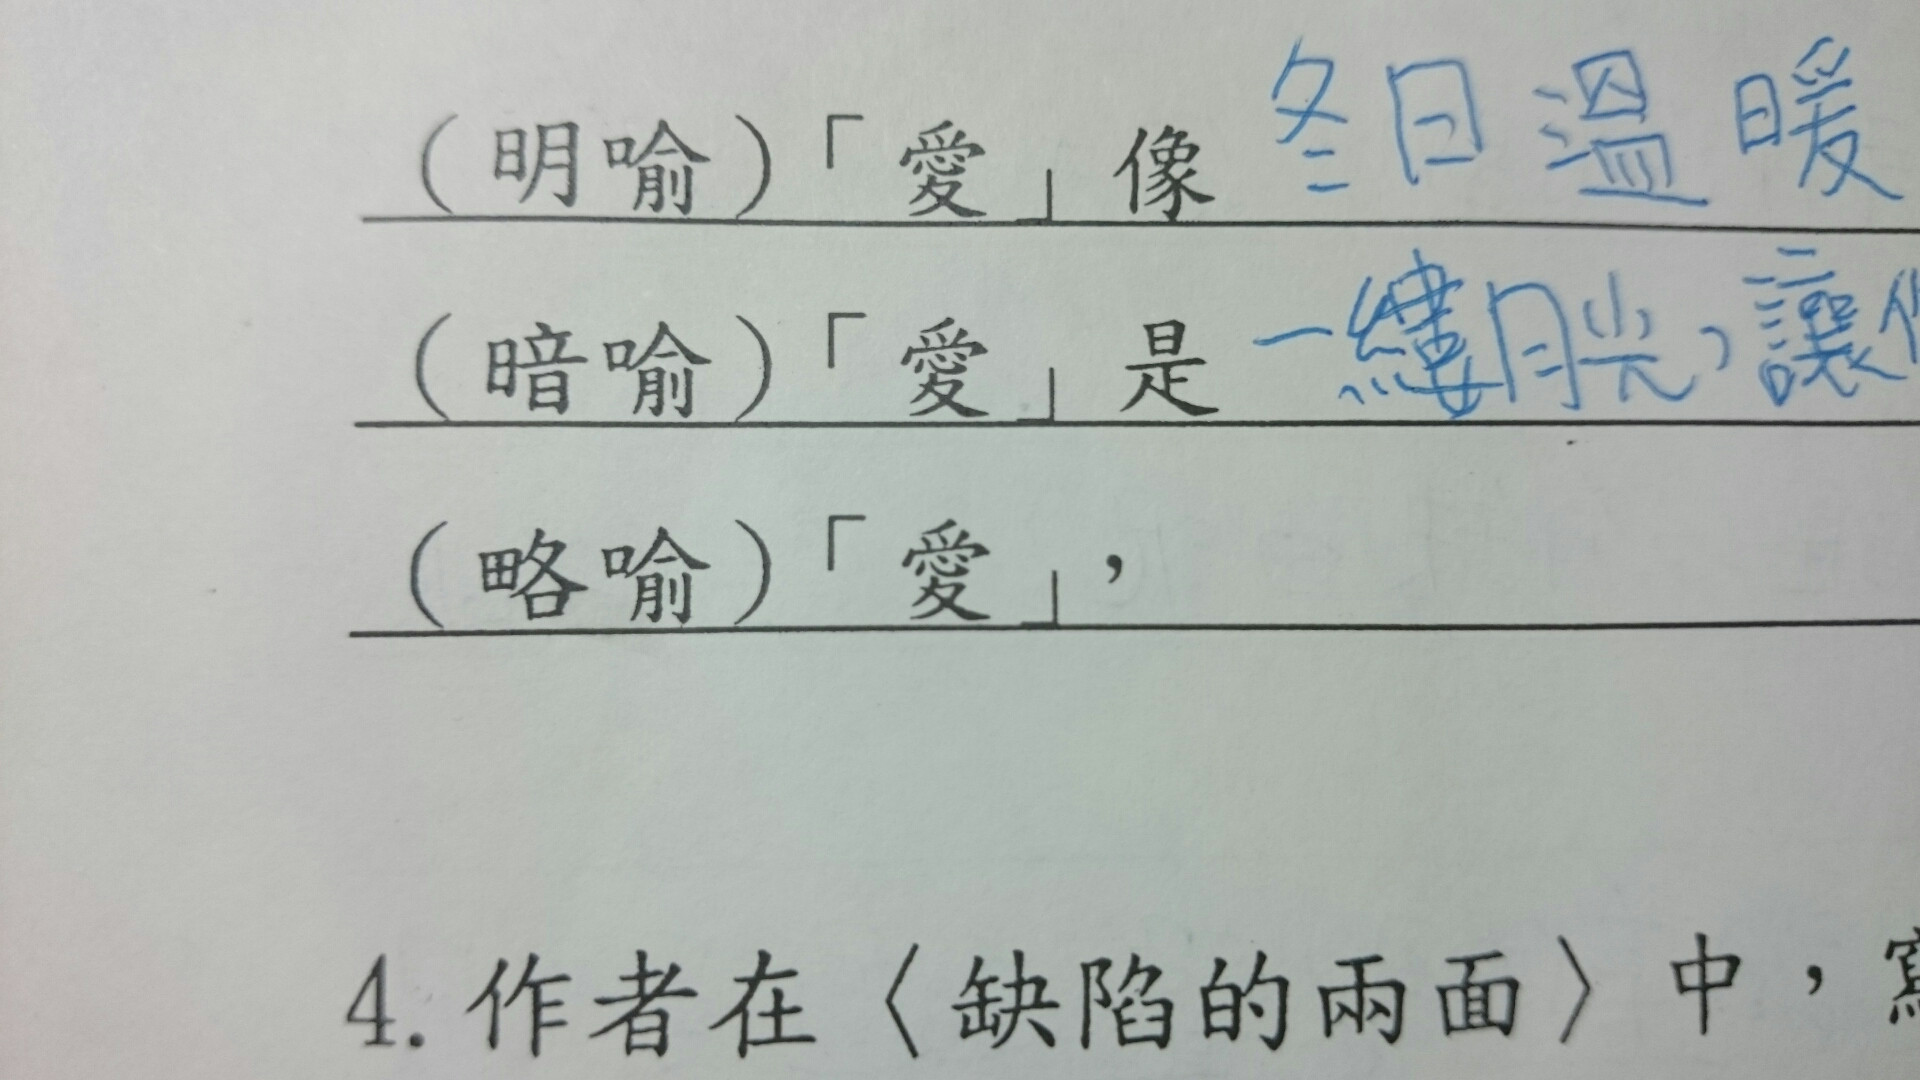 (明喻)「愛」像冬日溫暖
(暗喻)「愛」是一縷月光,讓
(略喻)「愛」,
4.作者在〈缺陷的兩面〉中,寫